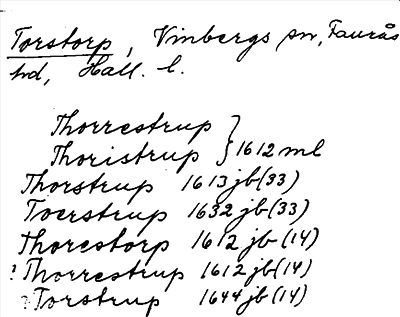 Torstorp, Vinbergs sn, Faurås
hd, Hall. l.
Thorrestrup }
Thoristrup } 1612 ml
Thorstrup 1613 jb (33)
Toerstrup 1632 jb (33)
Thorestorp 1612 jb (14)
? Thorrestrup 1612 jb (14)
? Torstrup 1644 jb (14)